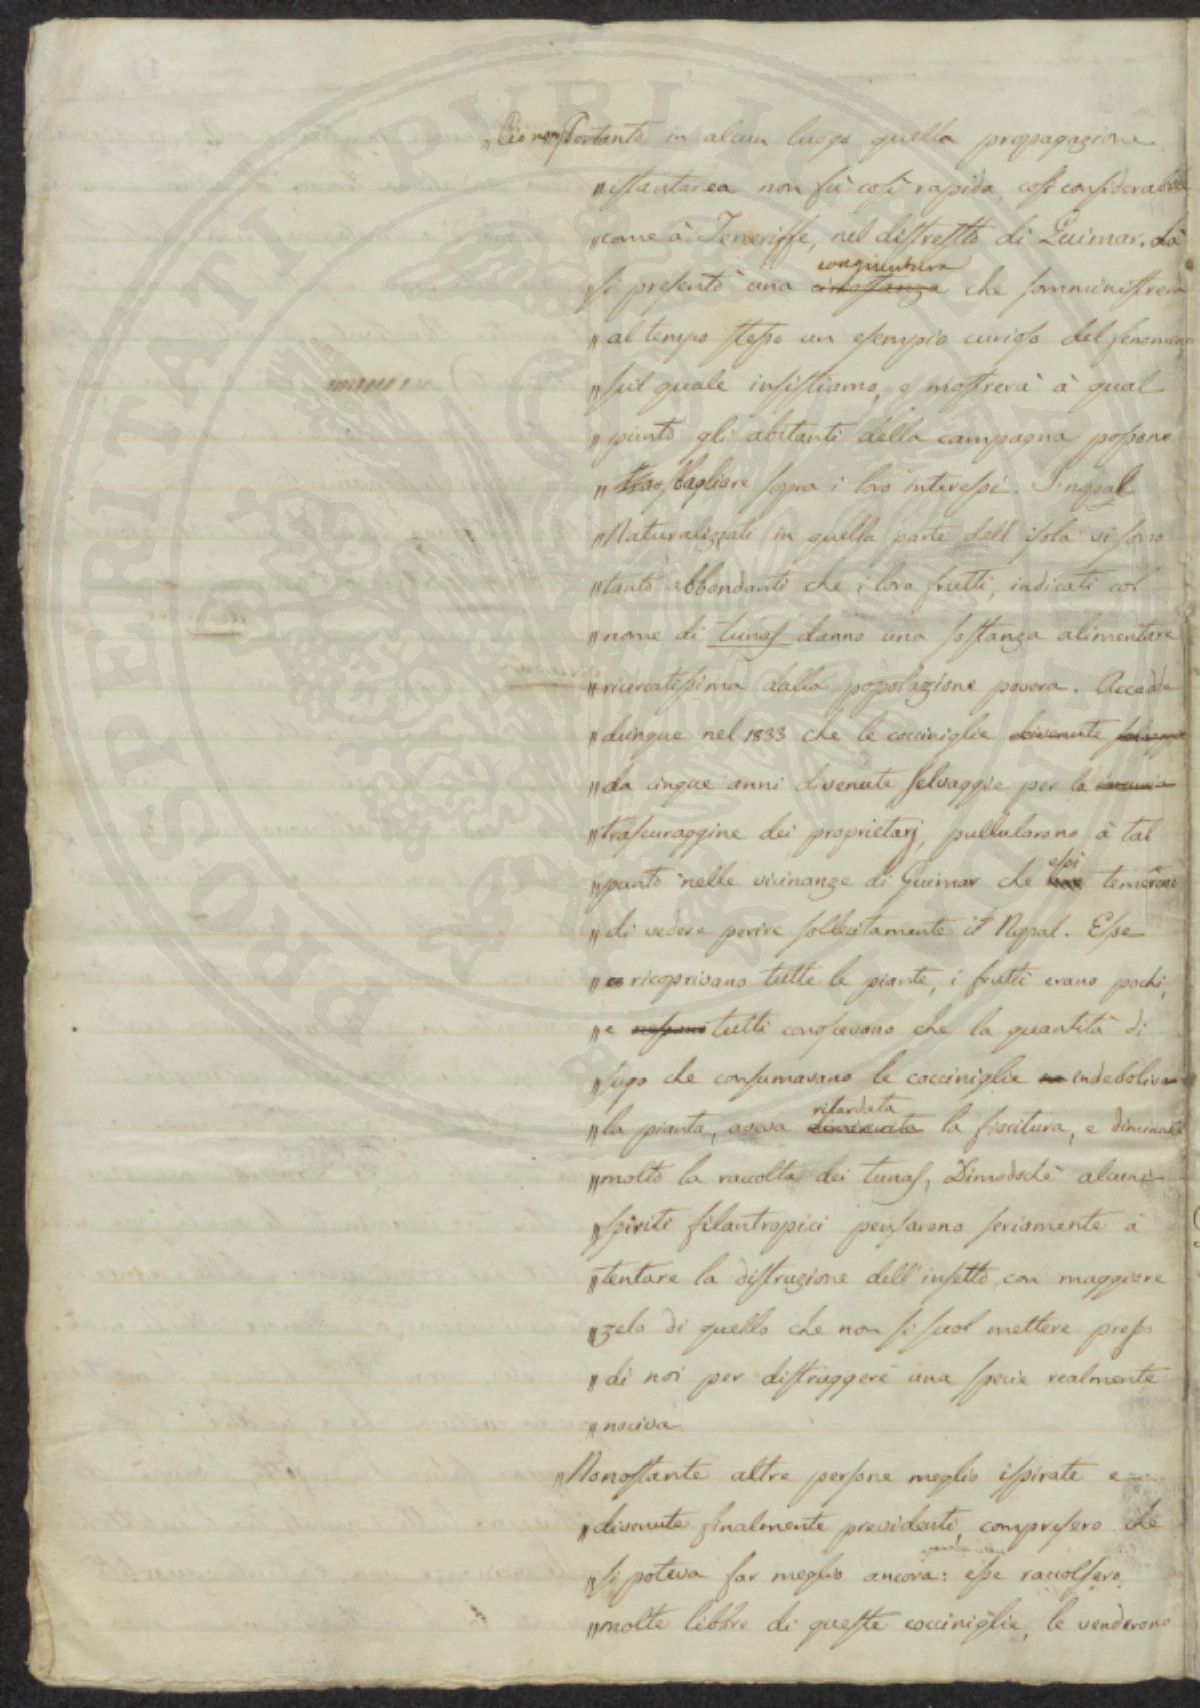 „Ciò non pertanto in alcun luogo quella propagazione
„istantanea non fù così rapida, così considerabile
„come à Teneriffe, nel distretto di Guimar. Là
congiuntura
„si presentò una circostanza che somministrerà
„al tempo stesso un esempio curioso del fenomeno
„sul quale insistiamo, e mostrerà à qual
„punto gli abitanti della campagna possono
„sbagliare sopra i loro interessi. I nopal
„Naturalizzati in quella parte dell'isola vi sono
„tanto abbondanti che i loro frutti, indicati col
„nome di tunas danno una sostanza alimentare
„ricercatissima dalla popolazione povera. Accadde
„dunque nel 1833 che le cocciniglie divenute selvaggie
„da cinque anni divenute selvaggie per la incuria
„trascuraggine dei proprietarj, pullularono à tal
essi
„punto nelle vicinanze di Guimar che temerono
„di vedere perire sollecitamente il Nopal. Esse
„ricoprivano tutte le piante, i frutti erano pochi,
„e nessuno tutti conoscevano che la quantità di
„sugo che consumavano le cocciniglie ne indeboliva
ritardata
„la pianta, aveva diminuita la fioritura, e diminuito
„molto la raccolta dei tunas, Dimodochè alcuni
„spiriti filantropici pensarono seriamente à
„tentare la distruzione dell'insetto, con maggiore
„zelo di quello che non si suol mettere presso
„di noi per distruggere una specie realmente
„nociva
„Nonostante altre persone meglio ispirate e
„divenute finalmente previdenti, compresero che
„si poteva far meglio ancora: esse raccolsero
„molte libbre di queste cocciniglie, le venderono